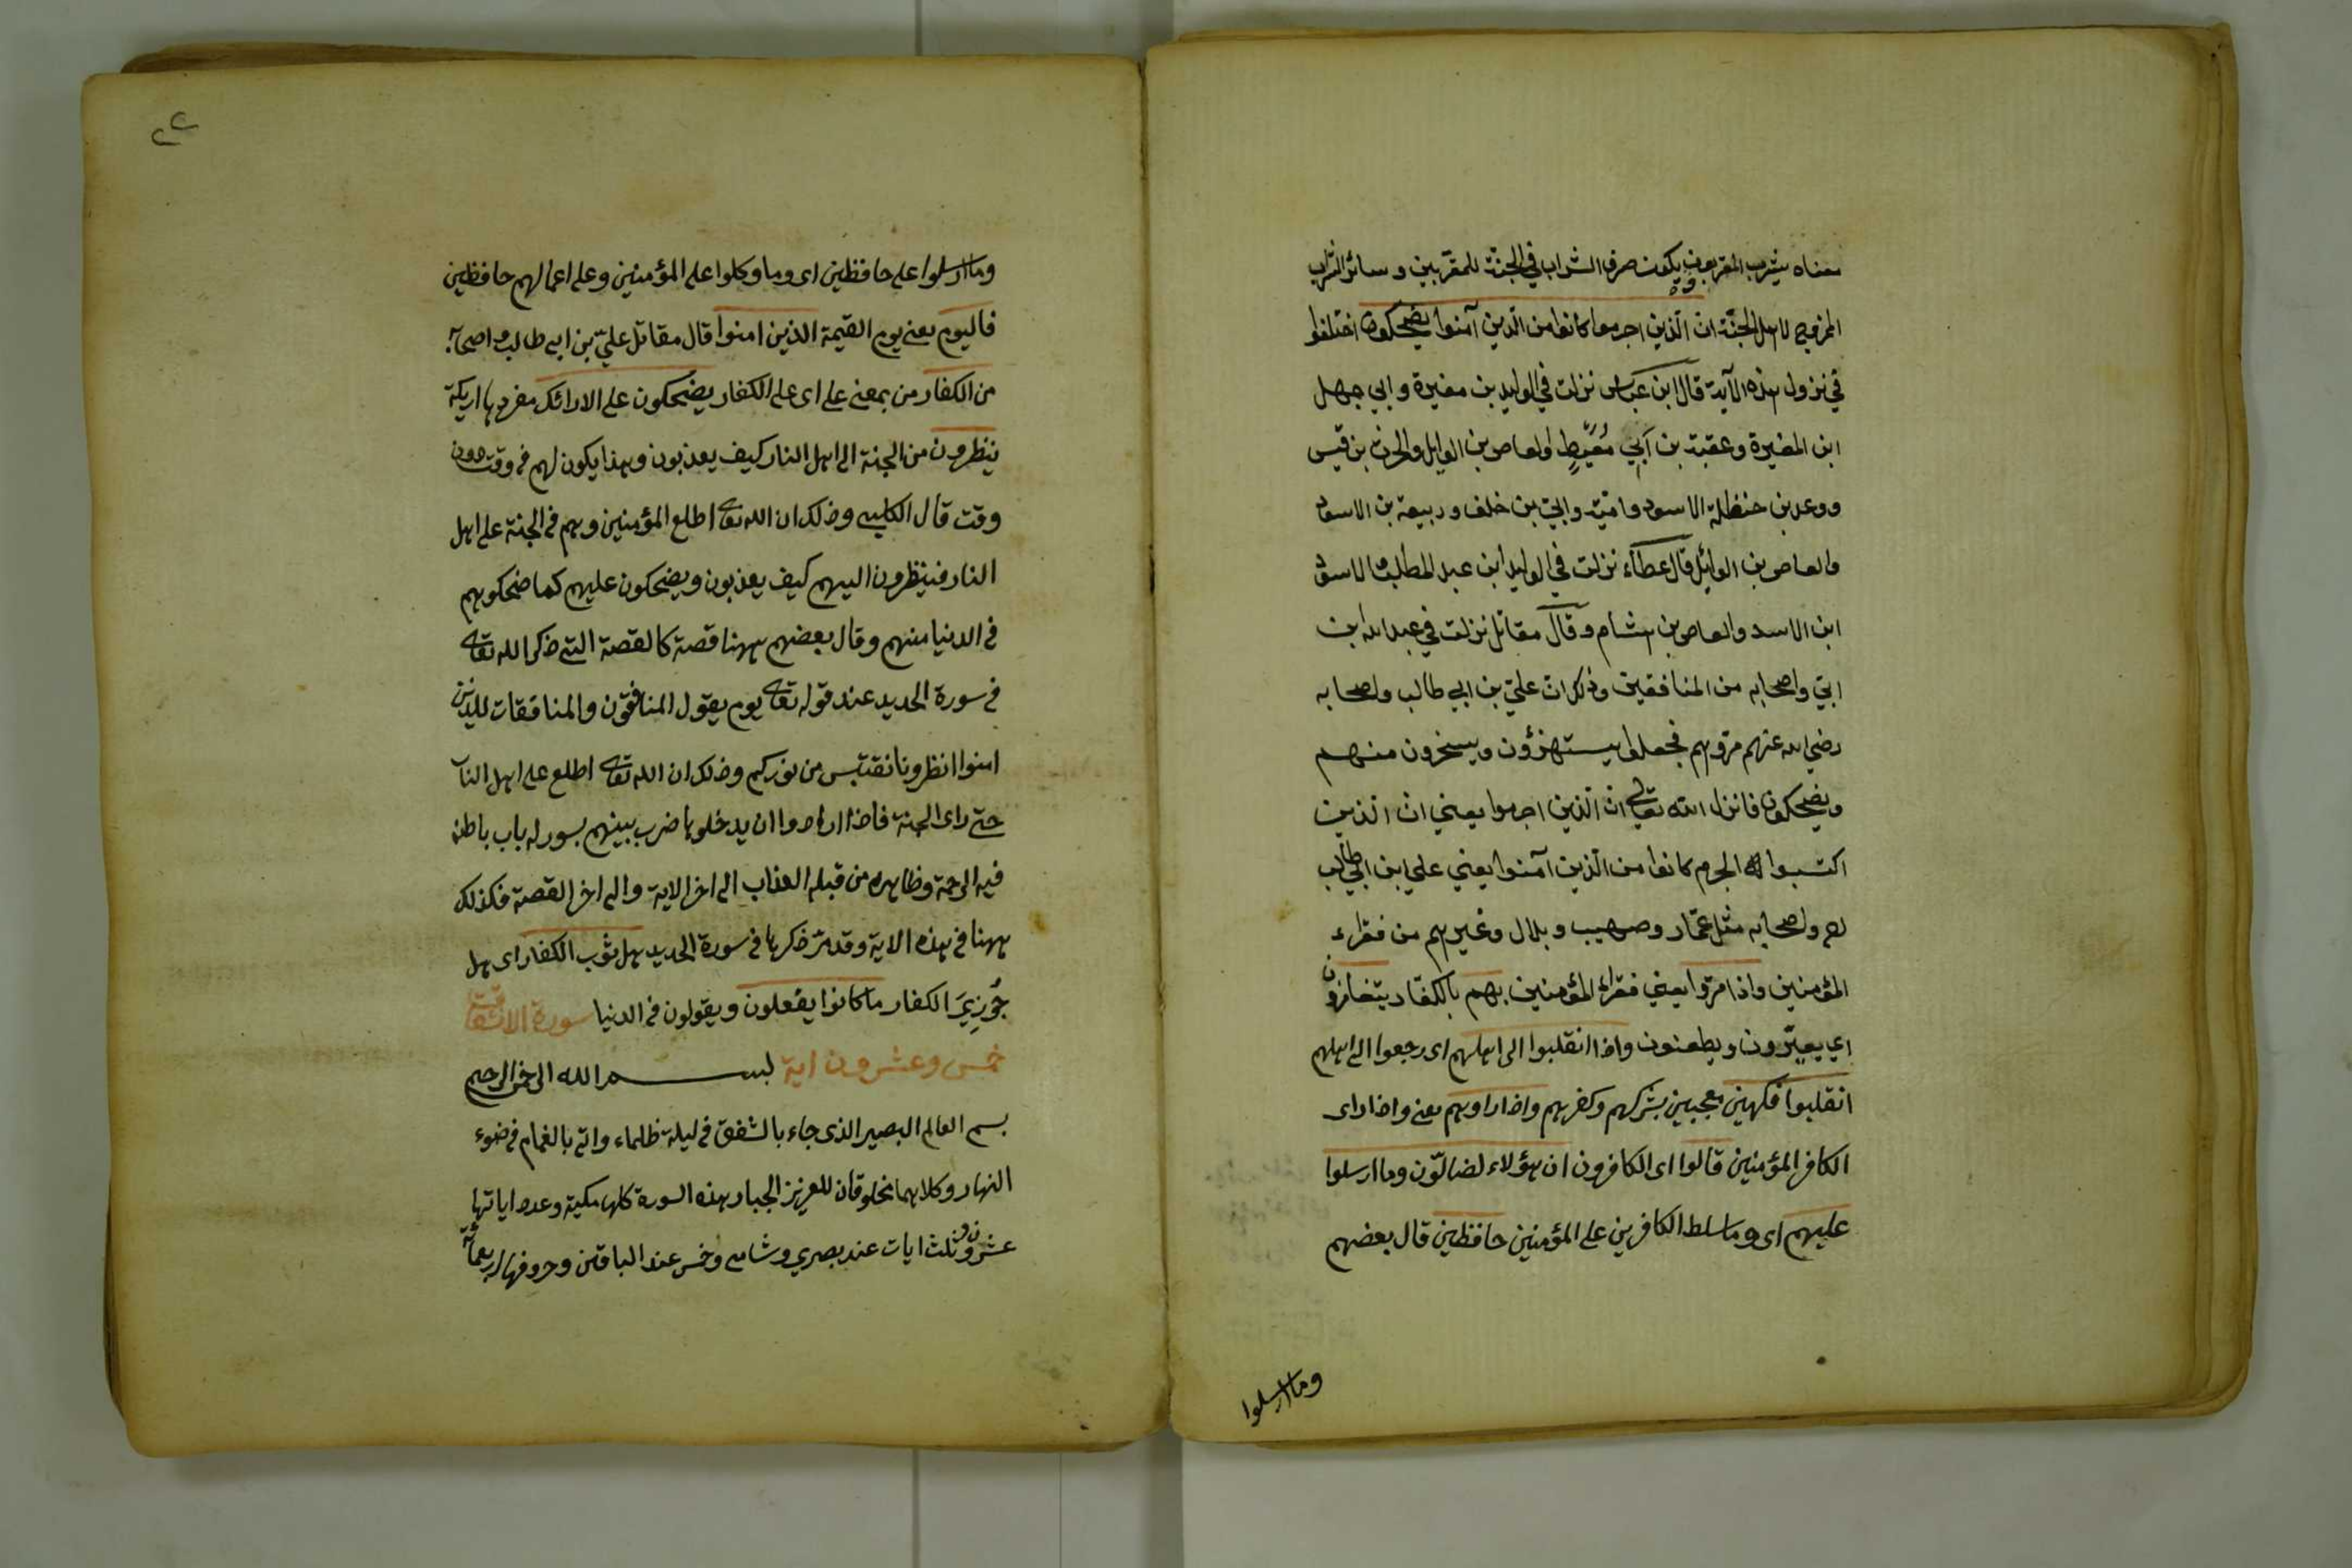 معناه يشرب المقربون ويكون صرف الشراب في الجنة للمقربين وسائر الشراب
المزوج لاهل الجنة ان الذين اجرموا كانوا من الذين آمنوا يضحكون اختلفوا
في نزول هذه الآية قال ابن عباس نزلت في الوليد بن مغيرة وابي جهل
ابن المغيرة وعقبة بن أبي مُعَيْطٍ والعاص بن الوايل والحرث بن قيس
حنظلة الاسود وامية وابي بن خلف وربيعة بن الاسود
والعاص بن الوائل قال عطاء نزلت في الوليد ابن عبد المطلب والاسود
ابن الاسد والعاص بن هشام وقال مقاتل نزلت في عبد الله ابن
ابيّ واصحابه من المنافقين وذلك ان عليّ بن ابي طالب واصحابه
رضي الله عنهم مرّوا بهم فجعلوا يستهزؤن ويسخرون منهم
ويضحكون فانزل الله تعالى ان الّذين اجرموا يعني ان الذين
اكتسبوا الجرم كانوا من الّذين آمنوا يعني علي ابن ابي طالب
رضـ واصحابه مثل عمّار وصهيب وبلال وغيرهم من فقراء
المؤمنين واذا مرّوا يعني فقراء المؤمنين بهم بالكفّار يتغامزون
اي يعيّرون ويطعنون واذا انقلبوا الى اهلهم اى رجعوا الى اهلهم
انقلبوا فكهين معجبين بشركهم وكفرهم واذا راوهم يعنى واذا راى
الكافر المؤمنين قالوا اى الكافرون ان هؤلاء لضالّون وما ارسلوا
عليهم اى وما سلط الكافرين على المؤمنين حافظين قال بعضهم
وما ارسلوا
٢٢
وما ارسلوا على حافظين اى وما وكلوا على المؤمنين وعلى اعمالهم حافظين
فاليوم يعنى يوم القيمة الذين امنوا قال مقاتل عليّ بن ابى طالب واصحابه
من الكفار من بمعنى على اى على الكفار يضحكون على الارائك مفردها اريكة
ينظرون من الجنة الى اهل النار كيف يعذبون وهذا يكون لهم فى وقت دون
وقت قال الكلبى وذلك ان الله تعالى اطلع المؤمنين وهم فى الجنة على اهل
النار فينظرون اليهم كيف يعذبون ويضحكون عليهم كما ضحكوهم
فى الدنيا منهم وقال بعضهم ههنا قصة كالقصة التى ذكر الله تعالى
فى سورة الحديد عند قوله تعالى يوم يقول المنافقون والمنافقات للذين
امنوا انظرونا نقتبس من نوركم وذلك ان الله تعالى اطلع على اهل النار
حتى راى الجنة فاذا ارادوا ان يدخلوها ضرب بينهم بسور له باب باطنه
فيه الرحمة وظاهره من قبله العذاب الى اخر الاية والى اخر القصة فكذلك
ههنا فى هذه الاية وقد مرّ ذكرها فى سورة الحديد هل ثوب الكفار اى هل
جُوزِيَ الكفار ما كانوا يفعلون ويقولون فى الدنيا سورة الانشقت
خمس وعشرون اية بسم الله الرحمن الرحيم
بسم العالم البصير الذى جاء بالشفق فى ليلة ظلماء واتى بالغمام فى ضوء
النهار وكلاهما مخلوقان للعزيز الجبار هذه السورة كلها مكية وعدد اياتها
عشرون وثلث ايات عند بصري وشامى وخمس عند الباقين وحروفها اربعمأة